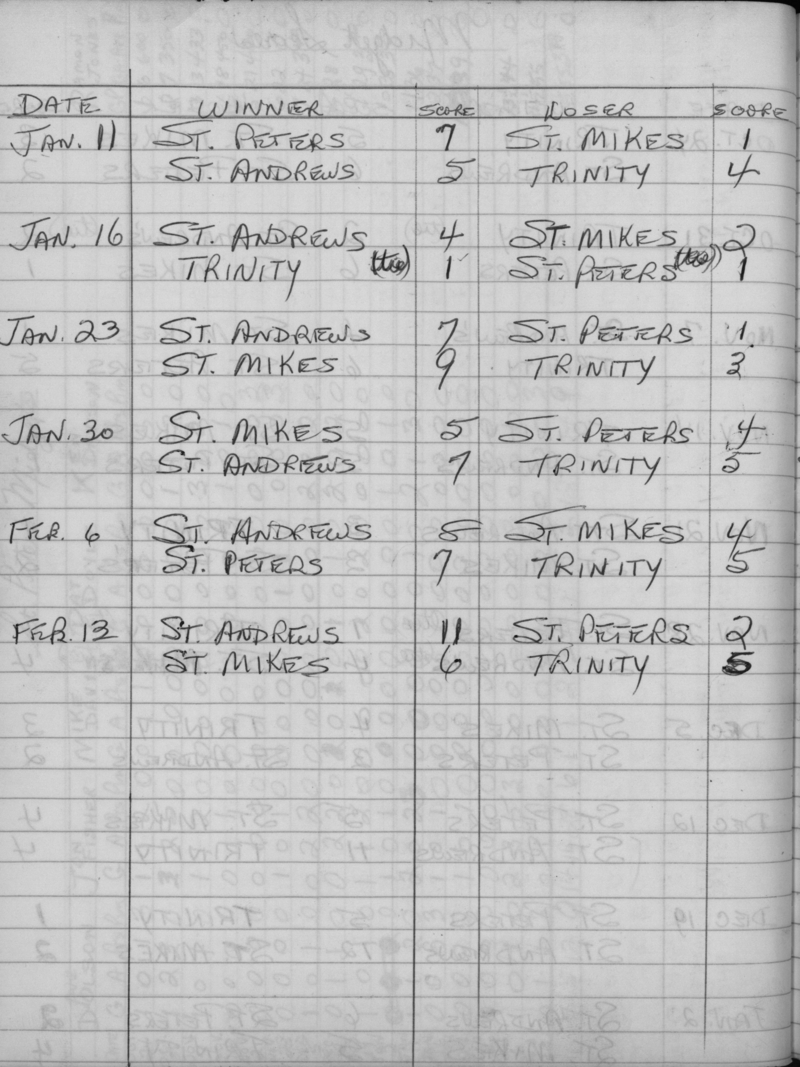 DATE WINNER SCORE LOSER SCORE
JAN. 11 ST. PETERS 7 ST. MIKES 1
ST. ANDREWS 5 TRINITY 4
JAN. 16 ST. ANDREWS 4 ST. MIKES 2
TRINITY (tie) 1 ST. PETERS (tie) 1
JAN. 23 ST. ANDREWS 7 ST. PETERS 1.
ST. MIKES 9 TRINITY 3
JAN. 30 ST. MIKES 5 ST. PETERS 4
ST. ANDREWS 7 TRINITY 5
FEB. 6 ST. ANDREWS 8 ST. MIKES 4
ST. PETERS 7 TRINITY 5
FEB. 13 ST. ANDREWS 11 ST. PETERS 2
ST. MIKES 6 TRINITY 5